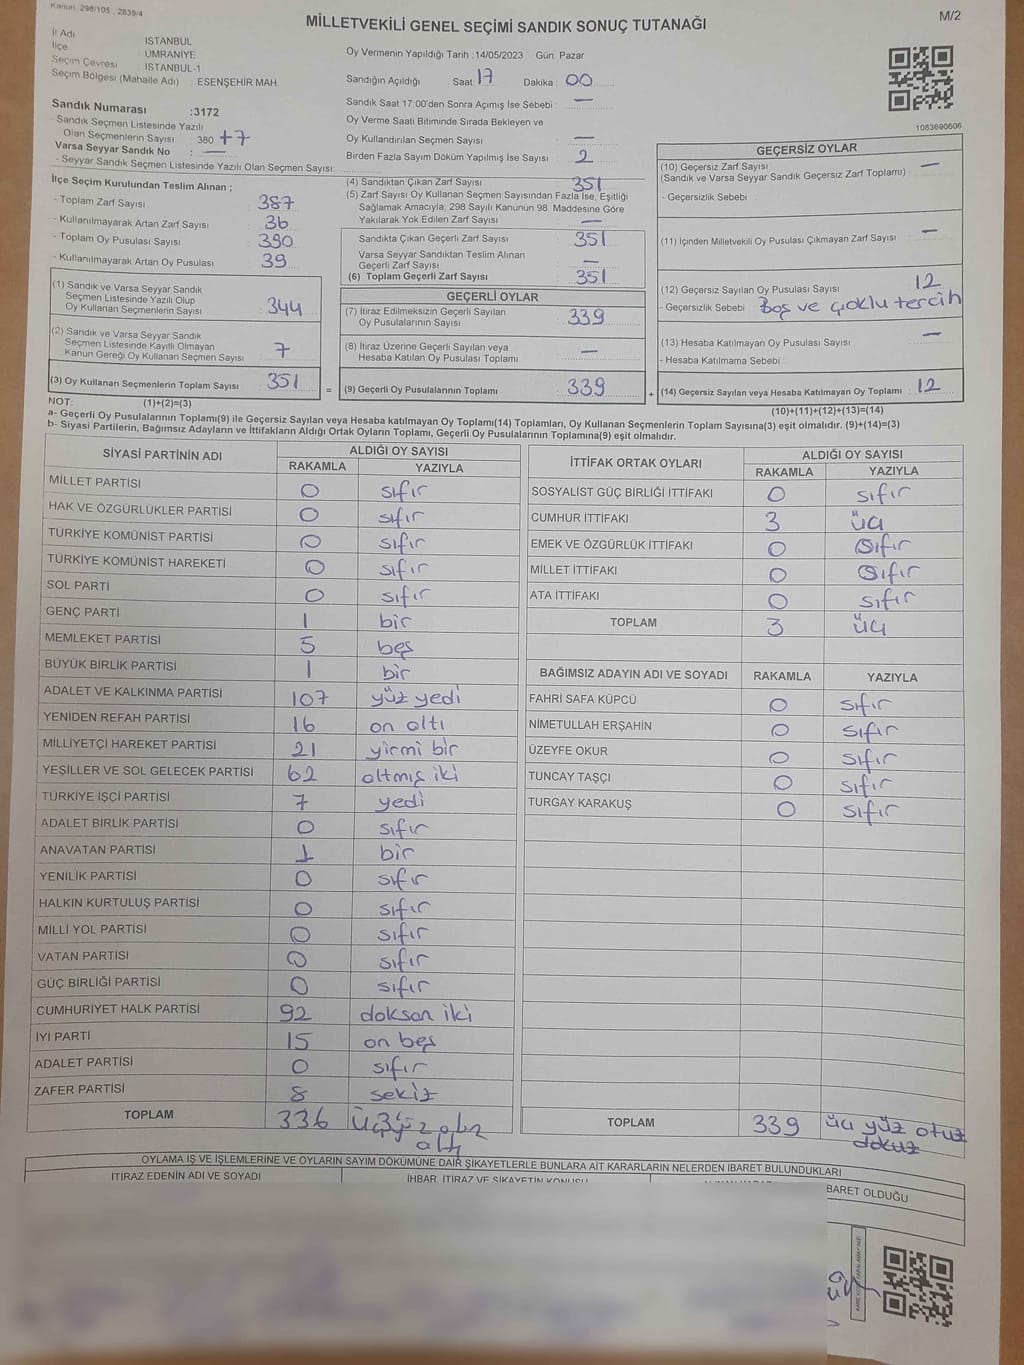 Kanun: 298/105 , 2839/4
M/2
MİLLETVEKİLİ GENEL SEÇİMİ SANDIK SONUÇ TUTANAĞI
İl Adı İSTANBUL
İlçe ÜMRANİYE
Seçim Çevresi İSTANBUL-1
Seçim Bölgesi (Mahalle Adı) ESENŞEHİR MAH.
Sandık Numarası :3172
- Sandık Seçmen Listesinde Yazılı
Olan Seçmenlerin Sayısı 380 +7
Varsa Seyyar Sandık No : —
- Seyyar Sandık Seçmen Listesinde Yazılı Olan Seçmen Sayısı:
İlçe Seçim Kurulundan Teslim Alınan ;
- Toplam Zarf Sayısı 387
- Kullanılmayarak Artan Zarf Sayısı 36
- Toplam Oy Pusulası Sayısı 390
- Kullanılmayarak Artan Oy Pusulası 39
(1) Sandık ve Varsa Seyyar Sandık
Seçmen Listesinde Yazılı Olup
Oy Kullanan Seçmenlerin Sayısı 344
(2) Sandık ve Varsa Seyyar Sandık
Seçmen Listesinde Kayıtlı Olmayan
Kanun Gereği Oy Kullanan Seçmen Sayısı 7
(3) Oy Kullanan Seçmenlerin Toplam Sayısı 351 =
Oy Vermenin Yapıldığı Tarih :14/05/2023 Gün: Pazar
Sandığın Açıldığı Saat: 17 Dakika : 00
Sandık Saat 17:00'den Sonra Açımış İse Sebebi : —
Oy Verme Saati Bitiminde Sırada Bekleyen ve
Oy Kullandırılan Seçmen Sayısı : —
Birden Fazla Sayım Döküm Yapılmış İse Sayısı : 2
(4) Sandıktan Çıkan Zarf Sayısı 351
(5) Zarf Sayısı Oy Kullanan Seçmen Sayısından Fazla İse, Eşitliği
Sağlamak Amacıyla, 298 Sayılı Kanunun 98. Maddesine Göre
Yakılarak Yok Edilen Zarf Sayısı —
Sandıkta Çıkan Geçerli Zarf Sayısı 351
Varsa Seyyar Sandıktan Teslim Alınan
Geçerli Zarf Sayısı —
(6) Toplam Geçerli Zarf Sayısı 351
GEÇERLİ OYLAR
(7) İtiraz Edilmeksizin Geçerli Sayılan
Oy Pusulalarının Sayısı 339
(8) İtiraz Üzerine Geçerli Sayılan veya
Hesaba Katılan Oy Pusulası Toplamı —
(9) Geçerli Oy Pusulalarının Toplamı 339 +
1083690606
GEÇERSİZ OYLAR
(10) Geçersiz Zarf Sayısı —
(Sandık ve Varsa Seyyar Sandık Geçersiz Zarf Toplamı)
- Geçersizlik Sebebi :
(11) İçinden Milletvekili Oy Pusulası Çıkmayan Zarf Sayısı —
(12) Geçersiz Sayılan Oy Pusulası Sayısı 12
- Geçersizlik Sebebi : Boş ve çoklu tercih
(13) Hesaba Katılmayan Oy Pusulası Sayısı —
- Hesaba Katılmama Sebebi :
(14) Geçersiz Sayılan veya Hesaba Katılmayan Oy Toplamı : 12
NOT: (1)+(2)=(3) (10)+(11)+(12)+(13)=(14)
a- Geçerli Oy Pusulalarının Toplamı(9) ile Geçersiz Sayılan veya Hesaba katılmayan Oy Toplamı(14) Toplamları, Oy Kullanan Seçmenlerin Toplam Sayısına(3) eşit olmalıdır. (9)+(14)=(3)
b- Siyasi Partilerin, Bağımsız Adayların ve İttifakların Aldığı Ortak Oyların Toplamı, Geçerli Oy Pusulalarının Toplamına(9) eşit olmalıdır.
SİYASİ PARTİNİN ADI ALDIĞI OY SAYISI
RAKAMLA YAZIYLA
MİLLET PARTİSİ 0 sıfır
HAK VE ÖZGÜRLÜKLER PARTİSİ 0 sıfır
TÜRKİYE KOMÜNİST PARTİSİ 0 sıfır
TÜRKİYE KOMÜNİST HAREKETİ 0 sıfır
SOL PARTİ 0 sıfır
GENÇ PARTİ 1 bir
MEMLEKET PARTİSİ 5 beş
BÜYÜK BİRLİK PARTİSİ 1 bir
ADALET VE KALKINMA PARTİSİ 107 yüz yedi
YENİDEN REFAH PARTİSİ 16 on altı
MİLLİYETÇİ HAREKET PARTİSİ 21 yirmi bir
YEŞİLLER VE SOL GELECEK PARTİSİ 62 altmış iki
TÜRKİYE İŞÇİ PARTİSİ 7 yedi
ADALET BİRLİK PARTİSİ 0 sıfır
ANAVATAN PARTİSİ 1 bir
YENİLİK PARTİSİ 0 sıfır
HALKIN KURTULUŞ PARTİSİ 0 sıfır
MİLLİ YOL PARTİSİ 0 sıfır
VATAN PARTİSİ 0 sıfır
GÜÇ BİRLİĞİ PARTİSİ 0 sıfır
CUMHURİYET HALK PARTİSİ 92 doksan iki
İYİ PARTİ 15 on beş
ADALET PARTİSİ 0 sıfır
ZAFER PARTİSİ 8 sekiz
TOPLAM 336
altı
İTTİFAK ORTAK OYLARI ALDIĞI OY SAYISI
RAKAMLA YAZIYLA
SOSYALİST GÜÇ BİRLİĞİ İTTİFAKI 0 sıfır
CUMHUR İTTİFAKI 3 üç
EMEK VE ÖZGÜRLÜK İTTİFAKI 0 sıfır
MİLLET İTTİFAKI 0 sıfır
ATA İTTİFAKI 0 sıfır
TOPLAM 3 üç
BAĞIMSIZ ADAYIN ADI VE SOYADI RAKAMLA YAZIYLA
FAHRİ SAFA KÜPCÜ 0 sıfır
NİMETULLAH ERŞAHİN 0 sıfır
ÜZEYFE OKUR 0 sıfır
TUNCAY TAŞÇI 0 sıfır
TURGAY KARAKUŞ 0 sıfır
TOPLAM 339 üç yüz otuz
dokuz
OYLAMA İŞ VE İŞLEMLERİNE VE OYLARIN SAYIM DÖKÜMÜNE DAİR ŞİKAYETLERLE BUNLARA AİT KARARLARIN NELERDEN İBARET BULUNDUKLARI
İTİRAZ EDENİN ADI VE SOYADI İHBAR, İTİRAZ VE ŞİKAYETİN KONUSU BARET OLDUĞU